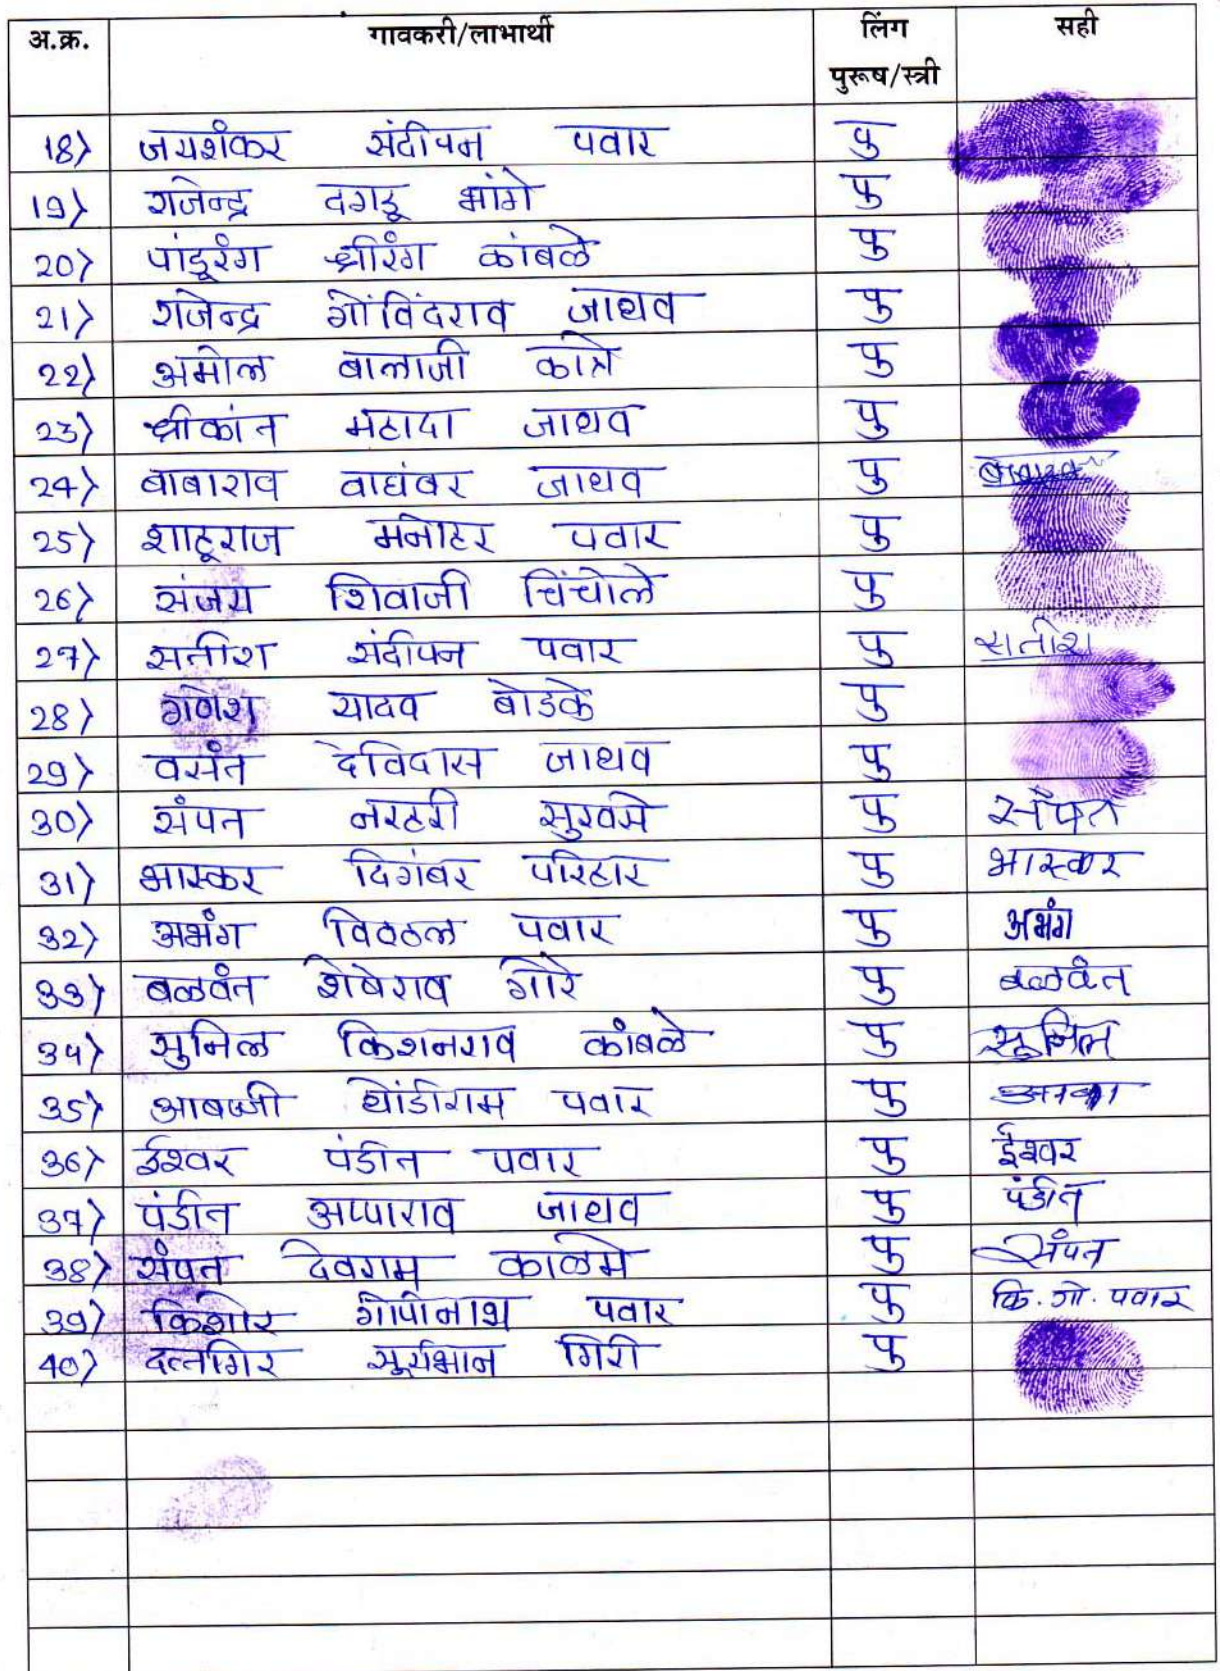 अ.क्र. गावकरी/लाभार्थी लिंग पुरूष/स्त्री सही
18) जयशंकर संदीपन पवार पु
19) राजेन्द्र दगडू भांगे पु
20) पांडूरंग श्रीरंग कांबळे पु
21) राजेन्द्र गोंविंदराव जाधव पु
22) अमोल बालाजी पु
23) श्रीकांत महादा जाधव पु
24) बाबाराव वाघंबर जाधव पु
25) शाहूराज मनोहर पवार पु
26) संजय शिवाजी चिंचोले पु
27) सतीश संदीपन पवार पु सतीश
28) गणेश यादव बोडके पु
29) वसंत देविदास जाधव पु
30) संपत नरहरी सुरवसे पु संपत
31) भास्कर दिगंबर परिहार पु भास्कर
32) अभंग विठठल पवार पु अभंग
33) बळवंत शेषेराव गोरे पु बळवंत
34) सुनिल किशनराव कांबळे पु सूनिल
35) आबाजी धोंडीराम पवार पु
36) ईश्वर पंडीत पवार पु ईश्वर
37) पंडीत अप्पाराव जाधव पु पंडीत
38) संपत देवराम काळमे पु संपत
39) किशोर गोपीनाथ पवार पु कि. गो. पवार
40) दत्तगिर सूर्यभान गिरी पु